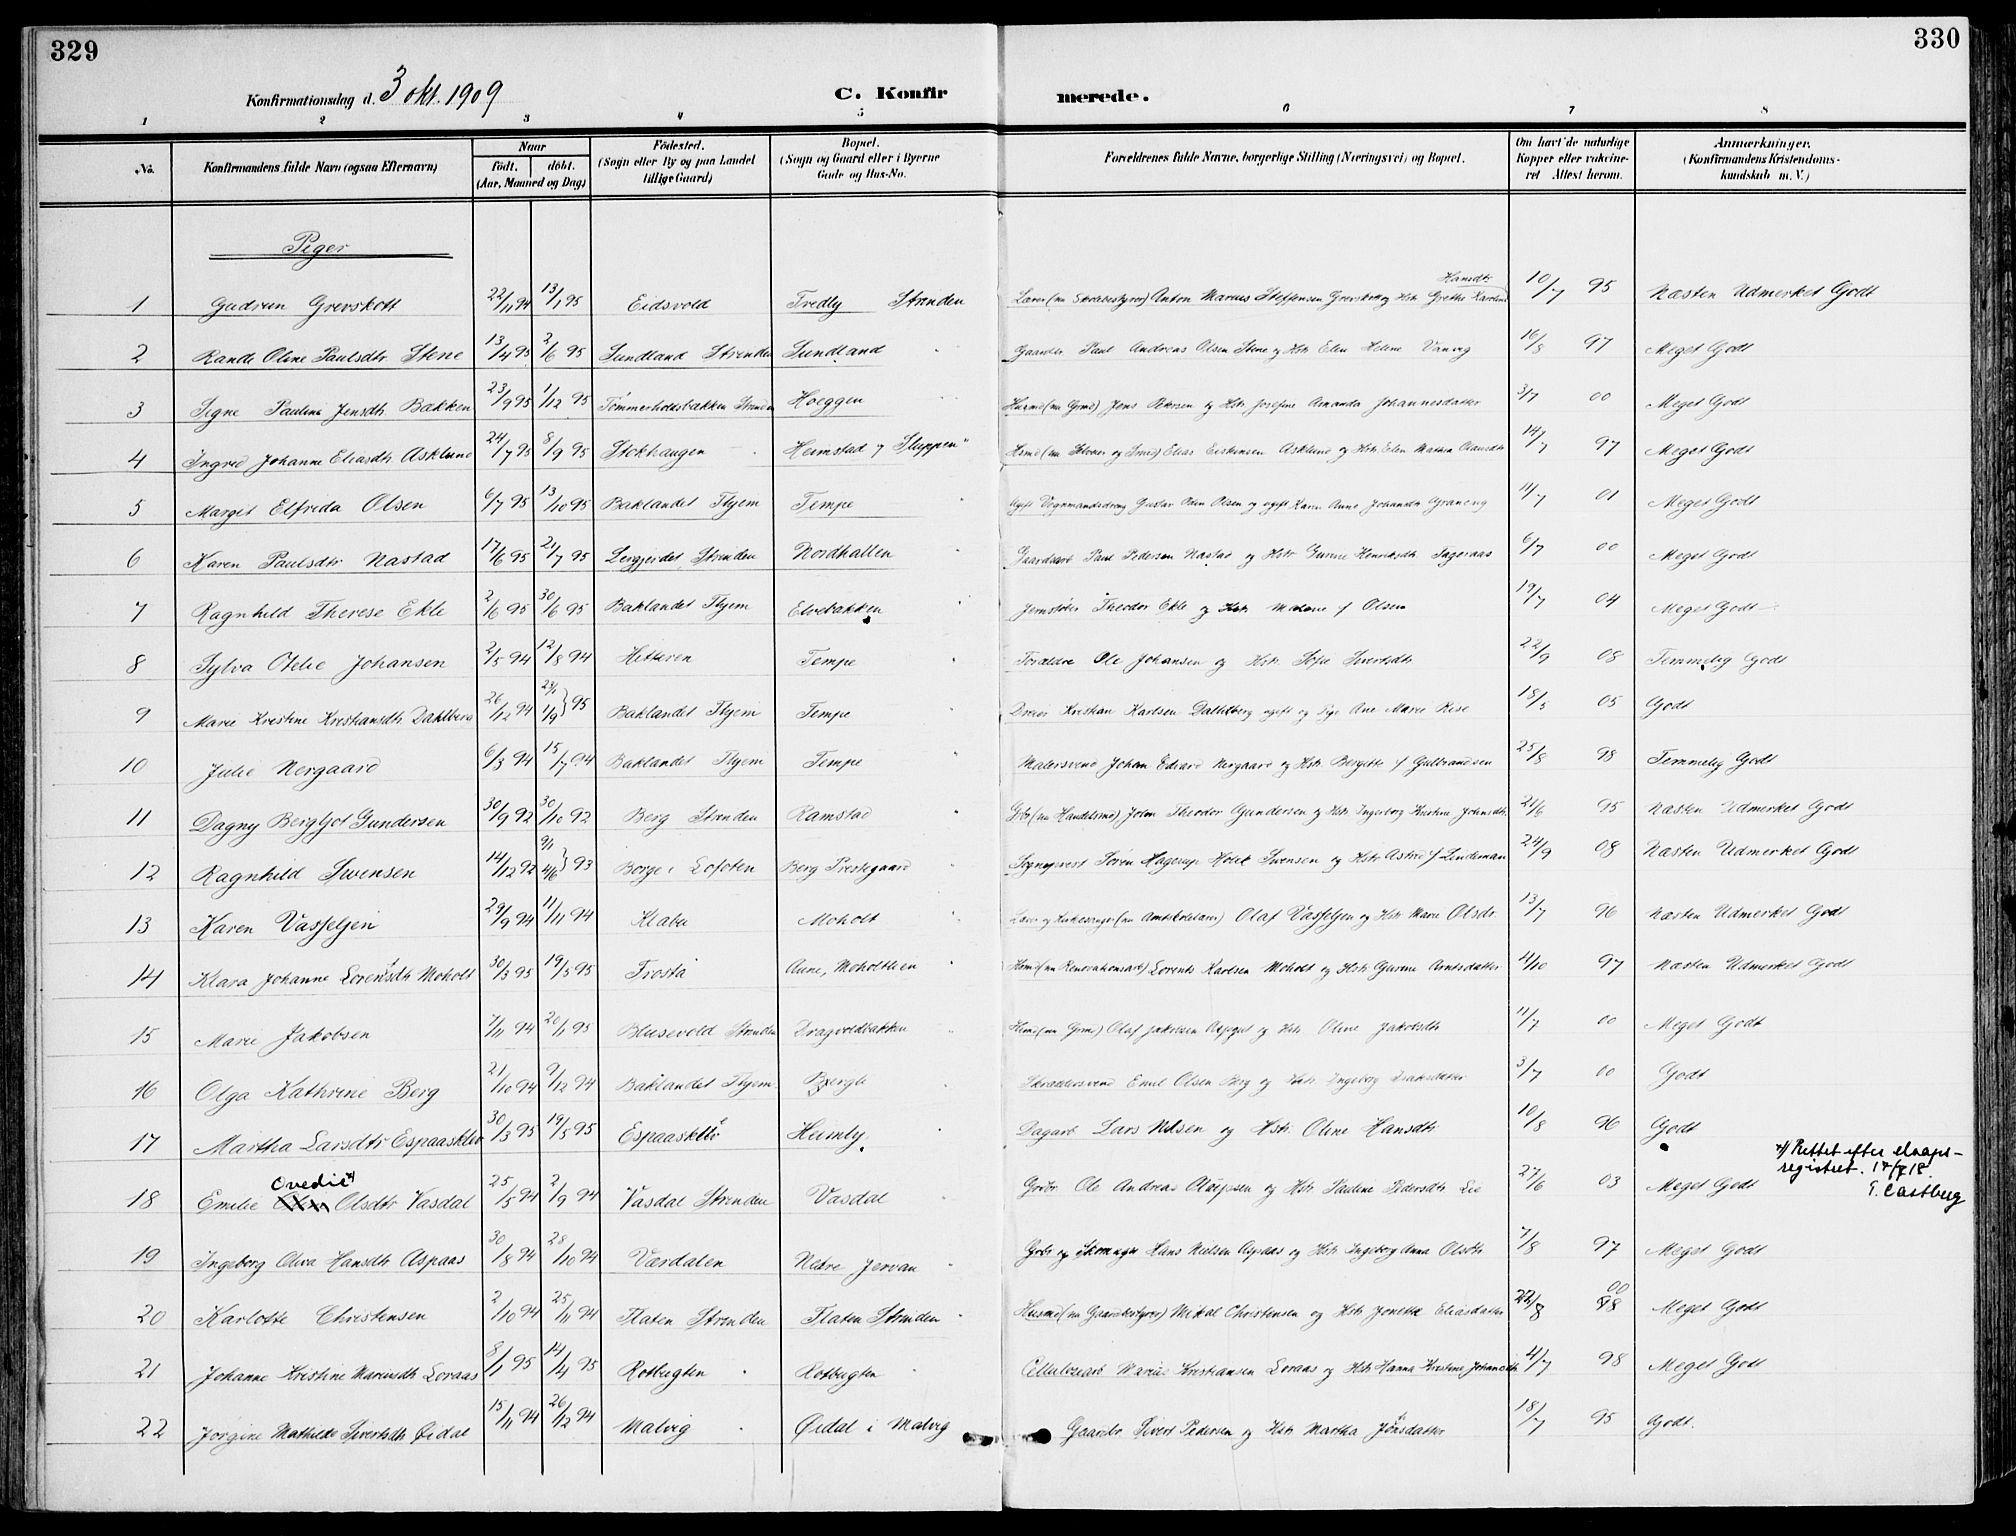 329
330
Konfirmationsdag d. 3 okt. 1909
C. Konfirmerede.
1 2 3 4 5 6 7 8
No. Konfirmandens fulde Navn (ogsaa Efternavn) Naar født. døbt. (Aar, Maaned og Dag) Fødested. (Sogn eller By og paa Landet tillige Gaard) Bopæl. (Sogn og Gaard eller i Byerne Gade og Hus-No. Forældrenes fulde Navne, borgerlige Stilling (Næringsvei) og Bopæl. Om havt de naturlige Kopper eller vakcineret Attest herom. Anmærkninger. (Konfirmandens Kristendomskundskab m. V.)
Piger
1 Gudrun Grevskott 22/11 94 13/1 95 Eidsvold Fredly Strinden Lærer (nu Skolebestyrer) Anton Marius Steffensen Grevskott og Hstr Grethe Karoline Hansdtr 10/7 95 Næsten Udmerket Godt
2 Rande Oline Paulsdtr Stene 13/4 95 2/6 95 Sundland Strinden Sundland " Gaardbr Paul Andreas Olsen Stene og Hstr Elen Helene Vanvig 16/8 97 Meget Godt
3 Signe Pauline Jensdtr Bakken 23/9 95 1/12 95 Tømmerholdtbakken Strinden Hoeggen " Husmd (nu Grmd) Jens Petersen og Hstr Josefine Amanda Johannesdatter 3/7 00 Meget Godt
4 Ingrid Johanne Eliasdtr Asklund 24/7 95 8/9 95 Stokhaugen " Heimstad y Sluppen " Elias Eistensen Asklund og Hstr Elen Mathea Olausdtr 14/7 97 Meget Godt
5 Marget Elfrida Olsen 6/7 95 13/10 95 Baklandet Thjem Tempe " Ugift Vognmandsdreng Gustav Odin Olsen og ugift Karen Anne Johansdtr Graneng 11/7 01 Meget Godt
6 Karen Paulsdtr Nastad 17/6 95 21/7 95 Lergjerdet Strinden Nordhallen Gaardarb Paul Pedersen Nastad og Hstr Gurine Henriksdtr Tageraas 6/7 00 Meget Godt
7 Ragnhild Therese Ekle 2/6 95 30/6 95 Baklandet Thjem Elvebakken " Jernstøber Theodor Ekle og Hstr Malene f Olsen 19/7 04 Meget Godt
8 Sylva Otelie Johansen 2/5 94 12/8 94 Hitteren Tempe " Forældre Ole Johansen og Hstr Sofie Sivertsdtr 22/9 08 Temmelig Godt
9 Marie Kristine Kristiansdtr Dahlberg 26/12 94 23/1 1/9 } 95 Baklandet Thjem Tempe " Dreier Kristian Karlsen Dahlberg ugift og Pige Ane Marie Rise 18/5 05 Godt
10 Julie Nergaard 6/3 94 15/7 94 Baklandet Thjem Tempe " Malersvend Johan Edvard Nergaard og Hstr Bergitte f Gulbrandsen 25/8 98 Temmelig Godt
11 Dagny Bergljot Gundersen 30/9 92 30/10 92 Berg Strinden Ramstad " Grbr (nu Handelsmd) John Theodor Gundersen og Hstr Ingeborg Kristine Johnsdtr. 21/6 95 Næsten Udmerket Godt
12 Ragnhild Swensen 14/12 92 9/1 4/6 } 93 Borge i Lofoten Berg Prestegaard " Sogneprest Søren Hagerup Holck Swensen og Hstr Astrid f Lindeman 24/9 08 Næsten Udmerket Godt
13 Karen Vasseljen 29/9 94 11/11 94 Klæbu Moholt " Lærer og Kirkesanger (nu Amtsskolelærer) Olaf Vasseljen og Hstr Marie Olsdr. 13/7 96 Næsten Udmerket Godt
14 Klara Johanne Lorentsdtr Moholt 30/3 95 19/5 95 Frosta Aune, Moholtlien " Husmd (nu Renovationsarb) Lorents Karlsen Moholt og Hstr Gurine Arntsdatter 4/10 97 Næsten Udmerket Godt
15 Marie Jakobsen 7/11 94 20/1 95 Blusevold Strinden Dragvoldbakken " Husmd (nu Grmd) Olaf Jakobsen Aspegut og Hstr Oline Jakobsdtr 11/7 00 Meget Godt
16 Olga Kathrine Berg 21/10 94 9/12 94 Baklandet Thjem Bergli Skræddersvend Emil Olsen Berg og Hstr Ingeborg Isaksdatter 3/7 00 Godt
17 Martha Larsdtr Espaasklev 30/3 95 19/5 95 Espaasklev Heimly " Dagarb Lars Nilsen og Hstr Oline Hansdtr 10/8 96 Godt
18 Emilie Ovedie x) Olsdtr Vasdal 25/5 94 2/9 94 Vasdal Strinden Vasdal Grbr Ole Andreas Olufssen og Hstr Pauline Pedersdtr Lie 27/6 03 Meget Godt
x) Rettet efter daaps-
registret. 17/7 18.
T. Castberg
19 Ingeborg Oliva Hansdtr Aspaas 30/8 94 28/10 94 Værdalen Nedre Jervan " Grbr og Skomager Hans Nielsen Aspaas og Hstr Ingeborg Anna Olsdtr 7/8 97 Meget Godt
20 Karlotte Christensen 2/10 94 25/11 94 Flaten Strinden Flaten Strinden " Husmd (nu Gaardbestyrer) Mikal Christensen og Hstr Jonetta Eliasdatter 22/8 00 98 Meget Godt
21 Johanne Kristine Mariusdtr Loraas 8/1 95 14/4 95 Rotbugten " Rotbugten " Cellulosearb Marius Kristiansen Loraas og Hstr Hanna Kristine Johansdtr 4/7 98 Meget Godt
22 Jørgine Mathilde Sivertsdtr Øidal 15/11 94 26/12 94 Malvig " Øidal i Malvig Gaardbr Sivert Pedersen og Hstr Martha Jonsdatter 18/7 95 Godt.